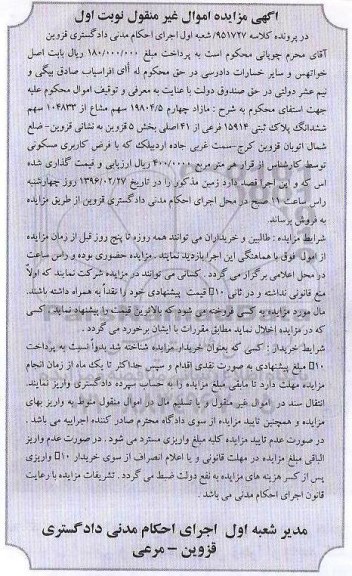 آگهی مزایده اموال غیر منقول نوبت اول
در پرونده کلاسه ۹۵۱۷۲۷/ شعبه اول اجرای احکام مدنی دادگستری قزوین
آقای محرم چوپانی محکوم است به پرداخت مبلغ ۱۸۰/۰۰۰/۰۰۰ ریال بابت اصل
خواتهس و سایر خسارات دادرسی در حق محکوم له آقای افراسیاب صادق بیگی و
نیم عشر دولتی در حق صندوق دولت با عنایت به معرفی و توقیف اموال محکوم علیه
جهت استفای محکوم به شرح : مازاد چهارم ۱۹۸۰۴/۵ سهم مشاع از ۱۰۴۸۳۳ سهم
ششدانگ پلاک ثبتی ۱۵۹۱۴ فرعی از ۴۱ اصلی بخش ۵ قزوین به نشانی قزوین- ضلع
شمال اتوبان قزوین کرج-سمت غربی جاده اردبیلک که با فرض کاربری مسکونی
توسط کارشناس از قرار هر متر مربع ۴۰۰/۰۰۰ ریال ارزیابی و قیمت گذاری شده
اس که و این اجرا قصد دارد زمین مذکور را در تاریخ ۱۳۹۶/۰۲/۲۷ روز چهارشنبه
راس ساعت ۱۱ صبح در محل اجرای احکام مدنی دادگستری قزوین از طریق مزایده
به فروش برساند
شرایط مزایده : طالبین و خریداران می توانند همه روزه تا پنج روز قبل از زمان مزایده
از اموال فوق با هماهنگی این اجرا بازدید نمایند. مزایده حضوری بوده و راس ساعت
در محل اعلامی برگزار می گردد . کسانی می توانند در مزایده شرکت نمایند که اولاً
منع قانونی نداشته و در ثانی ۱۰ قیمت پیشنهادی خود را نقداً به همراه داشته باشند.
مال مورد مزایده به کسی فروخته می شود که بالاترین قیمت را پیشنهاد نماید . کسی
که در مزایده اخلال نماید مطابق مقررات با ایشان برخورد می گردد .
شرایط خریدار : کسی که بعنوان خریدار مزایده شناخته شد بدواً نسبت به پرداخت
۱۰ مبلغ پیشنهادی به صورت نقدی اقدام و سپس حداکثر تا یک ماه از زمان انجام
مزایده مهلت دارد تا مابقی مبلغ مزایده را به حساب سپرده دادگستری واریز نمایند.
انتقال سند در اموال غیر منقول و یا تسلیم مال در اموال منقول منوط به واریز بهای
مزایده و همچنین تایید مزایده از سوی دادگاه محترم صادر کننده اجراییه می باشد .
در صورت عدم تایید مزایده کلیه مبلغ واریزی مسترد می شود . در صورت عدم واریز
الباقی مبلغ مزایده در مهلت قانونی و یا اعلام انصراف از سوی خریدار ۱۰ واریزی
پس از کسر هزینه های مزایده به نفع دولت ضبط می گردد . تشریفات مزایده با رعایت
قانون اجرای احکام مدنی می باشد .
مدیر شعبه اول اجرای احکام مدنی دادگستری
قزوین - مرعی